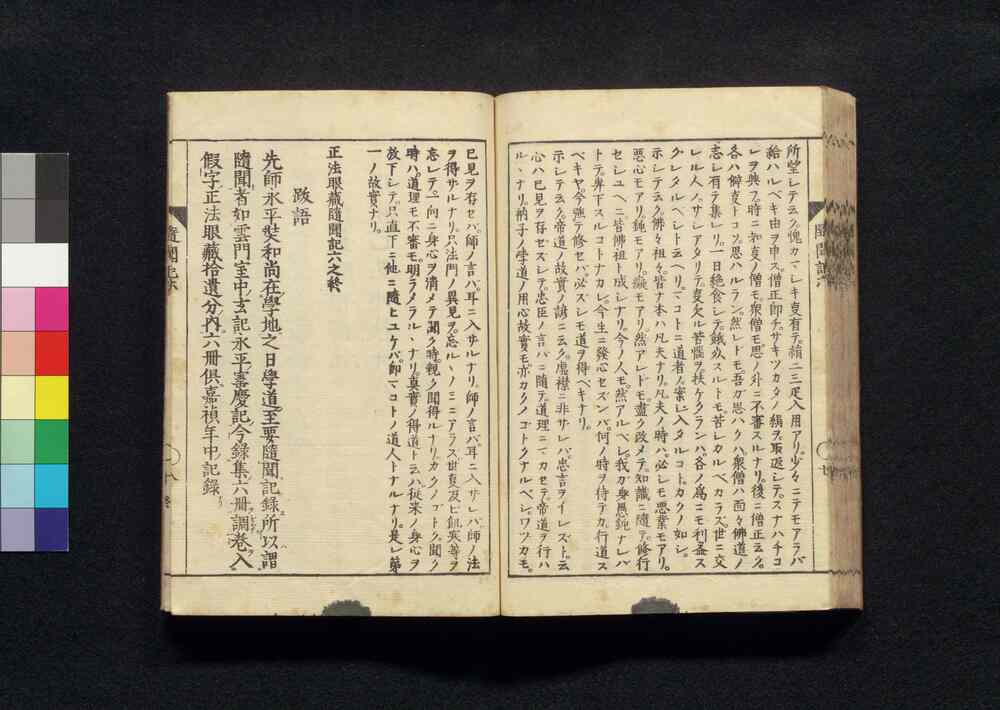 所望シテ云ク愧カマシキ叓有テ。絹二三疋入用アリ。少々ニテモアラバ
給ハルベキ由ヲ申ス。僧正即チサキツカタノ絹ヲ取返シテ。スナハチコ
レヲ与フ。時ニ知叓ノ僧モ。衆僧モ思ノ外ニ不審スルナリ。後ニ僧正云ク。
各ハ僻叓トコソ思ハルラン。然レトモ。吾カ思ハクハ。衆僧ハ面々佛道ノ
志シ有テ集レリ。一日絶食シテ。餓死スルトモ。苦シカルベカラズ。世ニ交
レル人ノ。サシアタリテ。叓欠ル苦惱ヲ。扶ケタランハ。各ノ為ニモ利益ス
グレタルヘシト云ヘリ。マコトニ道者ノ案シ入タルコトカクノ如シ。
示シテ云ク。佛々祖々。皆ナ本ハ凡夫ナリ。凡夫ノ時ハ。必シモ悪業モアリ。
悪心モアリ。鈍モアリ。癡モアリ。然アレドモ。盡ク改メテ。知識ニ隨テ。修行
セシユヘニ皆佛祖ト成シナリ。今ノ人モ。然アルベシ。我カ身愚鈍ナレバ
トテ。卑下スルコトナカレ。今生ニ發心セズンバ。何ノ時ヲ待テカ。行道ス
ベキヤ。今強テ修セバ。必スシモ道ヲ得ベキナリ。
示シテ云ク。帝道ノ故實ノ諺ニ云ク。虚襟ニ非サレバ。忠言ヲイレズト。云
心ハ己見ヲ存セズシテ。忠臣ノ言ハニ隨テ。道理ニマカセテ。帝道ヲ行ハ
ル丶ナリ。衲子ノ學道ノ用心故實モ。亦カクノコトクナルベシ。ワツカモ。
隨聞記六
己見ヲ存セバ。師ノ言ハ。耳ニ入サルナリ。師ノ言ハ。耳ニ入サレバ。師ノ法
ヲ得サルナリ。只法門ノ異見ヲ。忘ル丶ノミニアラズ。世叓及ヒ飢寒等ヲ
忘レテ。一向ニ身心ヲ清メテ聞ク時。親ク聞得ルナリ。カクノコトク聞ク
時ハ。道理モ不審モ。明ラメラル丶ナリ。真實ノ得道ト云ハ。従来ノ身心ヲ
放下シテ。只直下ニ他ニ隨ヒユケバ。即マコトノ道人トナルナリ。是レ第
一ノ故實ナリ。
正法眼藏隨聞記六之終
跋語
先師永平奘和尚在學地之日學道至要隨聞記録所以謂
隨聞者如雲門室中玄記永平寳慶記今録集六冊調巻入
假字正法眼藏拾遺分内六冊倶嘉禎年中記録